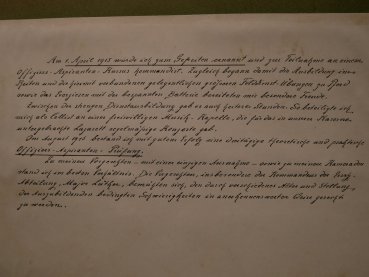 Am 1. April 1915 wurde ich zum Gefreiten ernannt und zur Teilnahme an einem
Offiziers-Aspiranten-Kursus kommandiert. Zugleich begann damit die Ausbildung im
Reiten und die hiermit verbundenen gelegentlichen grösseren Felddienst-Übungen zu Pferd
sowie das Exerzieren mit der bespannten Batterie bereiteten mir besondere Freude.
Zwischen der strengen Dienstausbildung gab es auch heitere Stunden. So beteiligte ich
mich als Cellist an einer freiwilligen Musik-Kapelle, die für das in unserer Kaserne
untergebrachte Lazarett regelmässige Konzerte gab.
Im August 1915 bestand ich mit gutem Erfolg eine dreitägige theoretische und praktische
Offiziers-Aspiranten-Prüfung.
Zu meinen Vorgesetzten - mit einer einzigen Ausnahme - sowie zu meinen Kameraden
stand ich im besten Verhältnis. Die Vorgesetzten, insbesondere der Kommandeur der Ersatz-
Abteilung, Major Lüther, bemühten sich, den durch verschiedenes Alter und Stellung
der Auszubildenden bedingten Schwierigkeiten in anerkennenswerter Weise gerecht
zu werden.